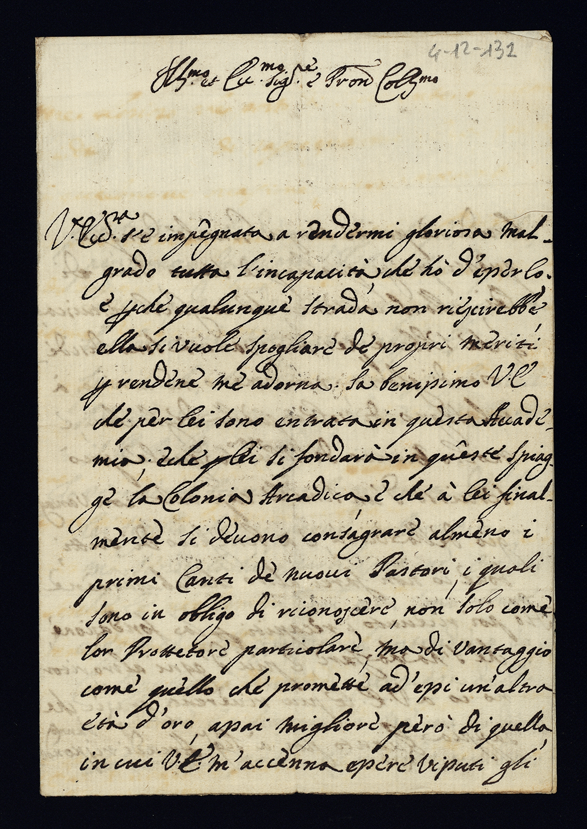 4-12-132
Ill.mo et Ecc.mo Sig.re e Pron Coll.mo
V. Ecc.za s'è impegnata a rendermi gloriosa mal-
grado tutta l'incapacità che hò d'esserlo.
e p che qualunque strada non riescirebbe
ella si vuole spogliare de propri meriti
p rendene me adorna: sa benissimo V E
che per lei sono entrata in questa Accade-
mia, e che p lei si fondarà in queste spiag-
ge la Colonia Arcadica e che à lei final-
mente si devono consagrare almeno i
primi Canti de nuovi Pastori, i quali
sono in obligo di riconoscere, non solo come
lor Prottetore particolare, ma di vantaggio
come quello che promette ad'essi un'altra
età d'oro, assai migliore però di quella
in cui V E m'accenna essere vissuti gli